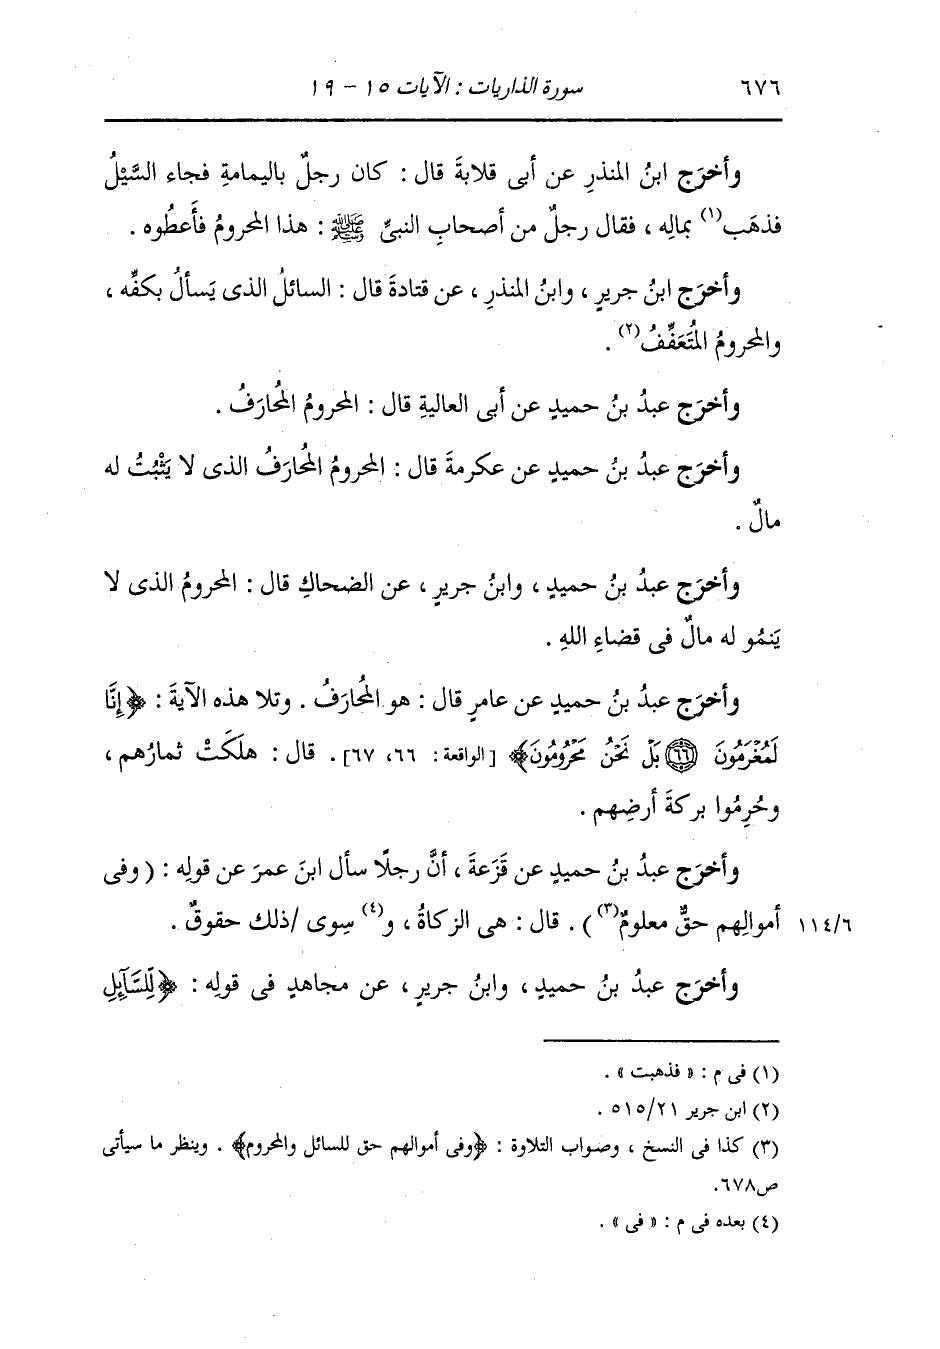 ٦٧٦ سورة الذاريات : الآيات ١٥ - ١٩
وأخرَج ابنُ المنذرِ عن أبى قلابةَ قال : كان رجلٌ باليمامةِ فجاء السَّيْلُ
فذهَب(١) بمالِه ، فقال رجلٌ من أصحابِ النبىِّ ﷺ : هذا المحرومُ فأَعطُوه .
وأخرَج ابنُ جريرٍ ، وابنُ المنذرِ ، عن قتادةَ قال : السائلُ الذى يَسألُ بكفِّه ،
والمحرومُ المُتَعَفِّفُ(٢) .
وأخرَج عبدُ بنُ حميدٍ عن أبى العاليةِ قال : المحرومُ المُحارَفُ .
وأخرَج عبدُ بنُ حميدٍ عن عكرمةَ قال : المحرومُ المُحارَفُ الذى لا يَثْبُتُ له
مالٌ .
وأخرَج عبدُ بنُ حميدٍ ، وابنُ جريرٍ ، عن الضحاكِ قال : المحرومُ الذى لا
يَنمُو له مالٌ فى قضاءِ اللهِ .
وأخرَج عبدُ بنُ حميدٍ عن عامرٍ قال : هو المُحارَفُ . وتلا هذه الآيةَ : ﴿إِنَّا
لَمُغْرَمُونَ ٦٦ بَلْ نَحْنُ مَحْرُومُونَ﴾ [الواقعة : ٦٦، ٦٧] . قال : هلَكَتْ ثمارُهم ،
وحُرِمُوا بركةَ أرضِهم .
وأخرَج عبدُ بنُ حميدٍ عن قَزَعةَ ، أنَّ رجلًا سأل ابنَ عمرَ عن قولِه : ( وفى
أموالِهم حقٌّ معلومٌ(٣) ) . قال : هى الزكاةُ ، و(٤) سِوى /ذلك حقوقٌ . ١١٤/٦
وأخرَج عبدُ بنُ حميدٍ ، وابنُ جريرٍ ، عن مجاهدٍ فى قولِه : ﴿لِّلسَّآئِلِ
(١) فى م : « فذهبت » .
(٢) ابن جرير ٥١٥/٢١ .
(٣) كذا فى النسخ ، وصواب التلاوة : ﴿وفى أموالهم حق للسائل والمحروم﴾ . وينظر ما سيأتى
ص٦٧٨.
(٤) بعده فى م : « فى » .